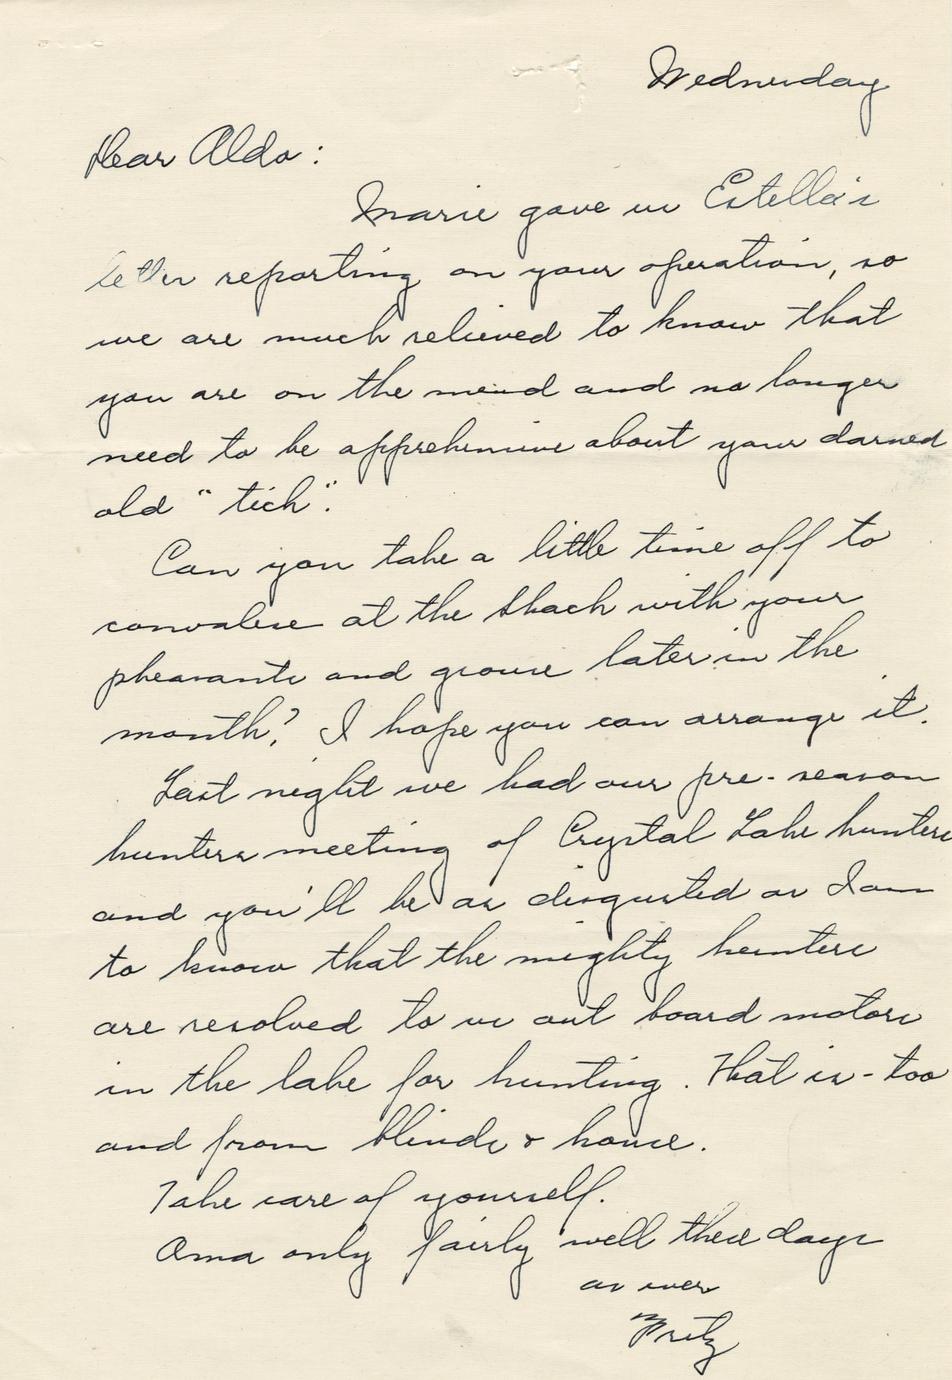 Wednesday
Dear Aldo:
Marie gave us Estella's
letter reporting on your operation, so
we are much relieved to know that
you are on the mend and no longer
need to be apprehensive about your darned
old "tick".
Can you take a little time off to
convalesce at the shack with your
pheasants and grouse later in the
month? I hope you can arrange it.
Last night we had our pre-season
hunters meeting of Crystal Lake hunters
and you'll be as disgusted as I am
to know that the mighty hunters
are resolved to use out board motors
in the lake for hunting. That is - too
and from blinds & house.
Take care of yourself.
Oma only fairly well these days
as ever
Fritz